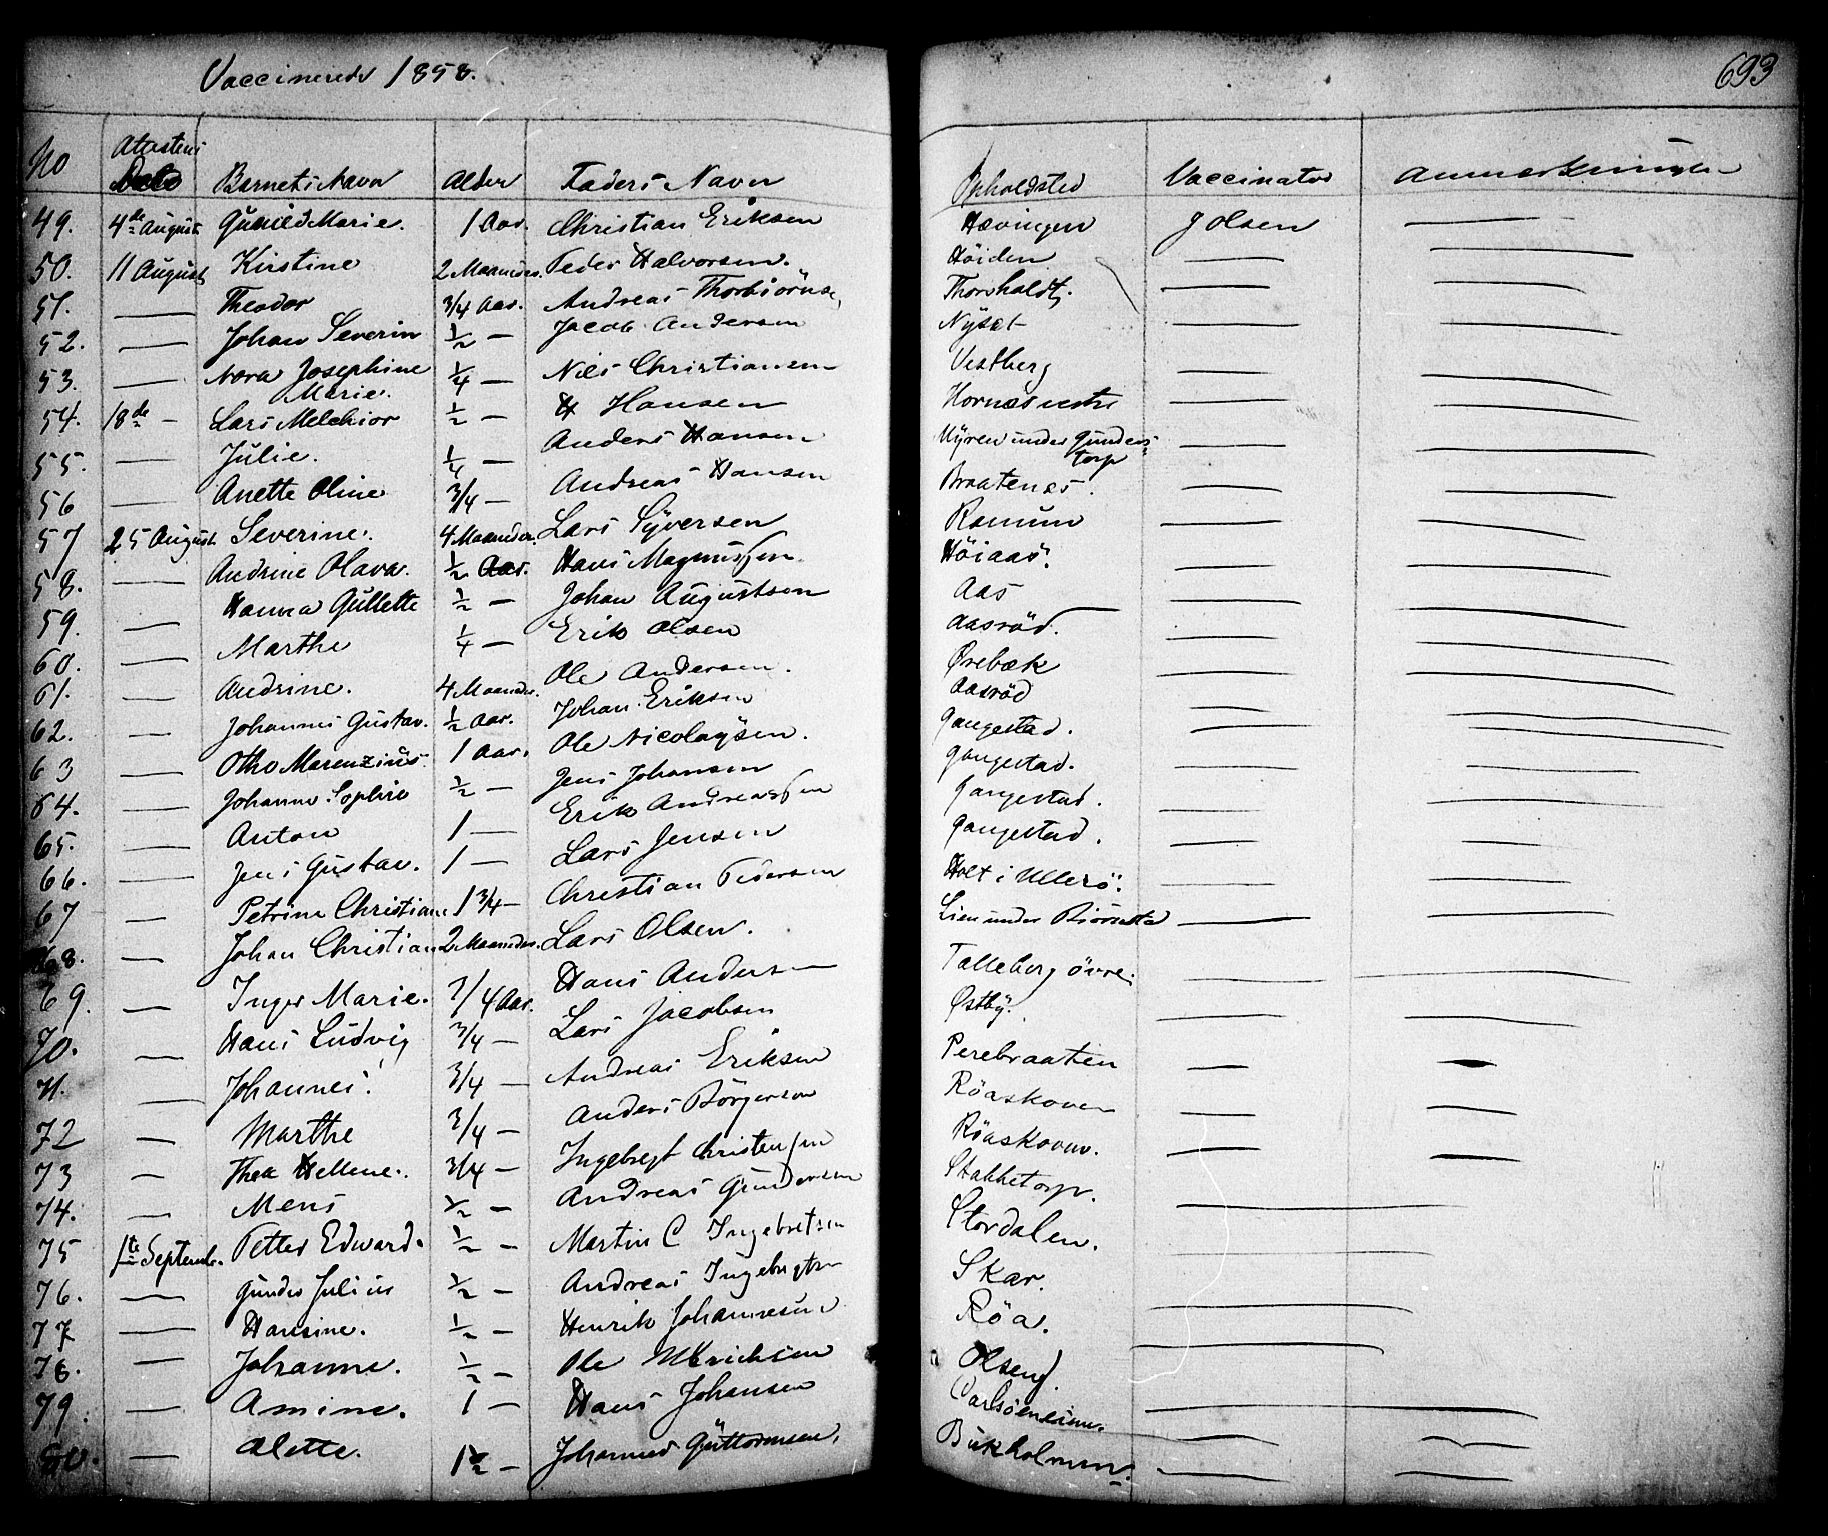 Vaccinerede 1858.
693
No Attestens Dato Barnets Navn Alder Faders Navn Opholdsted Vaccinator Anmærkninger
49. 4de August Gunild Marie. 1 Aar. Christian Eriksen Hævingen J Olsen —
50. 11 August Kirstine 2 Maaneder. Peder Halvorsen. Höiden — —
51. — Theodor 3/4 Aar. Andreas Thorbiörnsen Thorsholdt. — —
52. — Johan Severin 1/2 — Jacob Andersen Nÿsæt — —
53. — Nora Josephine Marie. 1/4 — Nils Christiansen Vestberg — —
54. 18de — Lars Melchior 1/2 — H Hansen Hornæs vestre — —
55. — Julie. 1/4 — Anders Hansen Mÿren under Gunders=torp — —
56 — Anette Oline 3/4 — Andreas Hansen Braatenæs. — —
57 25 August Severine. 4 Maaneder. Lars Sÿversen Ramum — —
58. — Andrine Olava. 1/2 Aar. Hans Magnussen Höiaas. — —
59. — Hanna Gullette 1/2 — Johan Augustsen Aas — —
60. — Marthe 1/4 — Erik Olsen Aasröd. — —
61. — Andrine. 4 Maaneder. Ole Andersen. Ørebæk — —
62. — Johannes Gustav. 1/2 Aar. Johan Eriksen Aasröd — —
63 — Otho Marenzius. 1 Aar. Ole Nicolaÿsen. Gangestad. — —
64. — Johanne Sophie 1/2 — Jens Johansen Gangestad. — —
65. — Anton 1 — Erik Andreassen Gangestad. — —
66. — Jens Gustav. 1 — Lars Jensen Gangestad. — —
67 — Petrine Christiane 1 3/4 — Christian Pedersen Holt i Ullerö. — —
68. — Johan Christian 2 Maaneder. Lars Olsen. Lien under Biörnstad — —
69. — Inger Marie. 3/4 Aar. Hans Andersen Talleberg övre. — —
70. — Hans Ludvig 3/4 — Lars Jacobsen Østbÿ. — —
71. — Johannes. 3/4 — Andreas Eriksen Perebraaten — —
72 — Marthe 3/4 — Anders Börgersen Röaskoven — —
73 — Thea Hellene. 3/4 — Ingebregt Christensen Röaskoven. — —
74. — Mens 1/2 — Andreas Gundersen Stabbetorp. —
75 1te Septembr. Petter Edward. 1/2 — Martin C Ingebretsen Stordalen. —
76. — Gunder Julius 1/2 — Andreas Ingebregtsen Skar. —
77 — Hansine. 1/2 — Henrik Johannesen Röa. —
78. — Johanne. 1/2 — Ole Ulrichsen —
79. — Amine. 1 — Hans Johansen — —
80. — Alette. 1 1/2 — Johannes Guttormsen. Bukholmen. — —